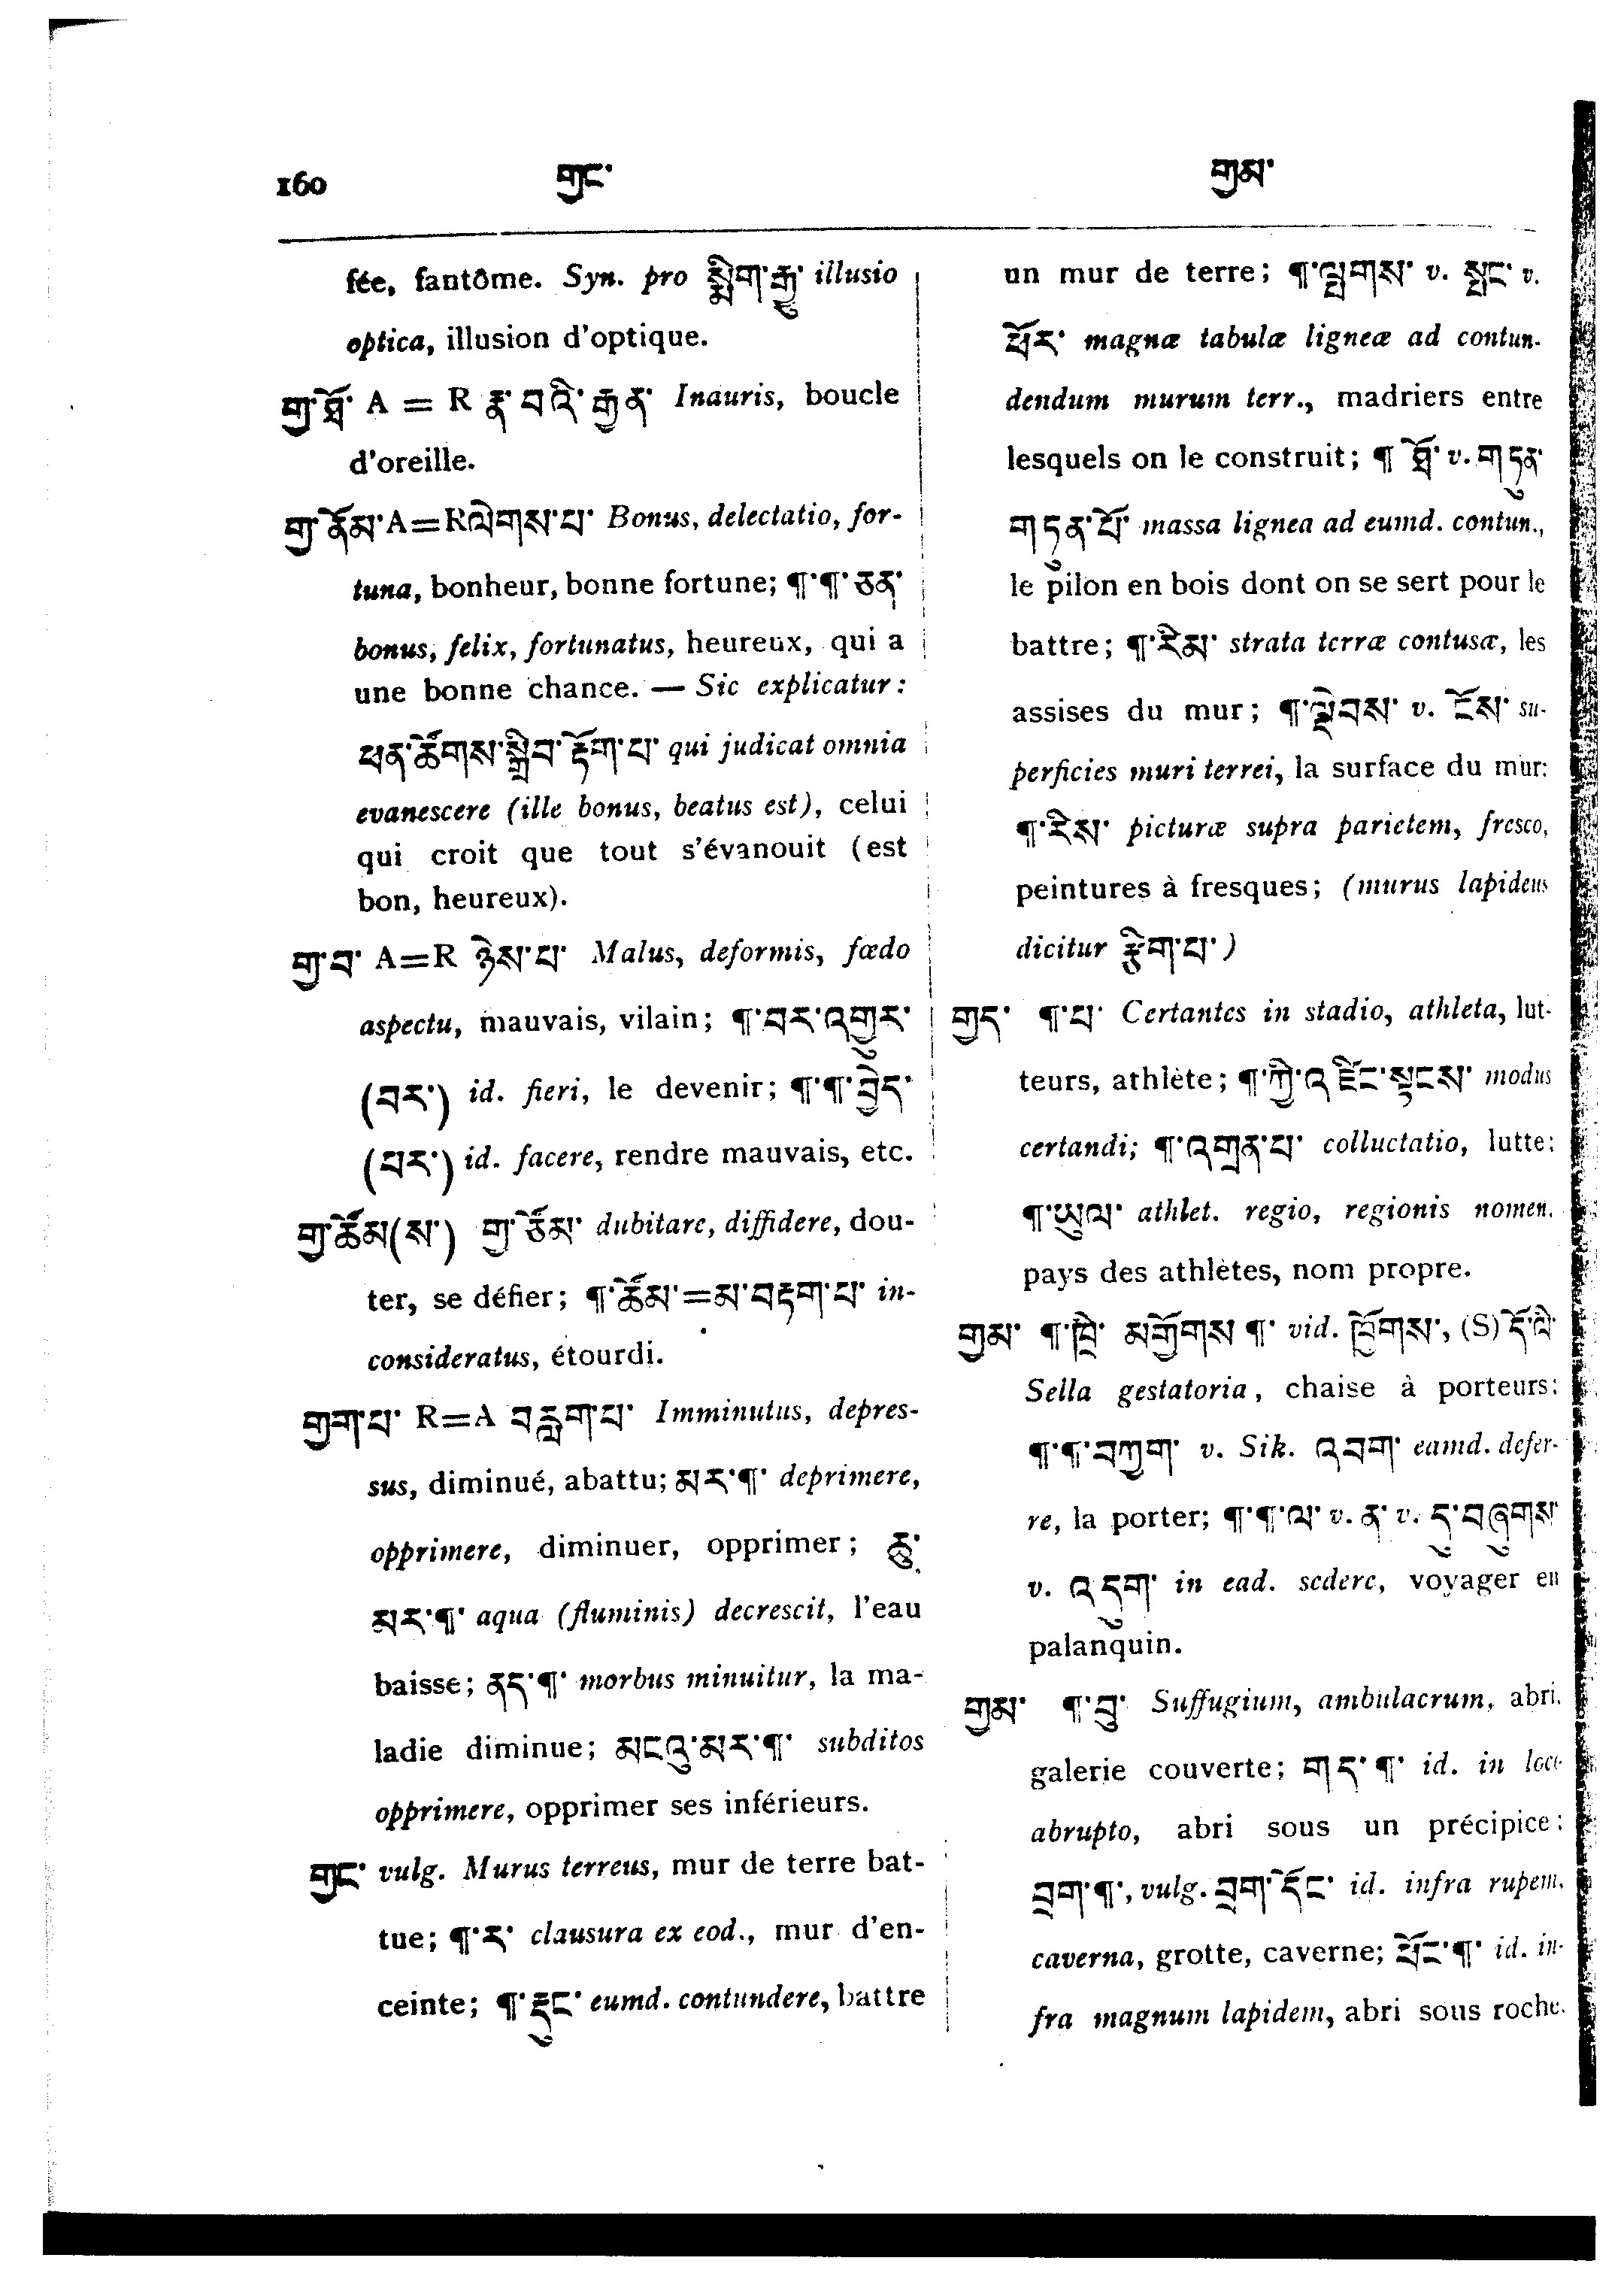 160 གྱང་ གྱམ་
fée, fantôme. Syn. pro སྨིག་རྒྱུ illusio
optica, illusion d'optique.
གྱ་ཐོ་ A = R རྣ་བའི་རྒྱན་ Inauris, boucle
d'oreille.
གྱ་ནོམ་ A=R ལེགས་པ་ Bonus, delectatio, for-
tuna, bonheur, bonne fortune; ¶་¶་ཅན་
bonus, felix, fortunatus, heureux, qui a
une bonne chance. — Sic explicatur :
ཕན་ཚོགས་སྒྲིབ་རྟོག་པ་ qui judicat omnia
evanescere (ille bonus, beatus est), celui
qui croit que tout s'évanouit (est
bon, heureux).
གྱ་བ་ A=R ཉེས་པ་ Malus, deformis, fœdo
aspectu, mauvais, vilain; ¶་བར་འགྱུར་
(བར་) id. fieri, le devenir; ¶་¶་བྱེད་
(བར་) id. facere, rendre mauvais, etc.
གྱ་ཚོམ(ས་) གྱ་ཙོམ་ dubitare, diffidere, dou-
ter, se défier; ¶་ཚོམ་=མ་བརྟག་པ་ in-
consideratus, étourdi.
གྱག་པ་ R=A བརླག་པ་ Imminutus, depres-
sus, diminué, abattu; མར་¶་ deprimere,
opprimere, diminuer, opprimer; ཆུ་
མར་¶་ aqua (fluminis) decrescit, l'eau
baisse; ནད་¶་ morbus minuitur, la ma-
ladie diminue; མངའུ་མར་¶་ subditos
opprimere, opprimer ses inférieurs.
གྱང་ vulg. Murus terreus, mur de terre bat-
tue; ¶་ར་ clausura ex eod., mur d'en-
ceinte; ¶་རྡུང་ eumd. contundere, battre
un mur de terre; ¶་ལྤགས་ v. སྤང་ v.
ཕོར་ magnæ tabulæ ligneæ ad contun-
dendum murum terr., madriers entre
lesquels on le construit; ¶ ཐོ་ v. གདུན་
གདུན་པོ་ massa lignea ad eumd. contun.,
le pilon en bois dont on se sert pour le
battre; ¶་རིམ་ strata terræ contusæ, les
assises du mur; ¶་ལྡེབས་ v. ངོས་ su-
perficies muri terrei, la surface du mur:
¶་རིས་ picturæ supra parietem, fresco,
peintures à fresques; (murus lapideus
dicitur རྩིག་པ་)
གྱད་ ¶་པ་ Certantes in stadio, athleta, lut-
teurs, athlète; ¶་ཀྱི་འཛིང་སྟངས་ modus
certandi; ¶་འགྲན་པ་ colluctatio, lutte:
¶་ཡུལ་ athlet. regio, regionis nomen,
pays des athlètes, nom propre.
གྱམ་ ¶་ཁྲི་ མགྱོགས ¶་ vid. ཁྲོགས་, (S) དོ་ལི་
Sella gestatoria, chaise à porteurs:
¶་¶་བཀྱག་ v. Sik. འབག་ eamd. defer-
re, la porter; ¶་¶་ལ་ v. ན་ v. དུ་བཞུགས་
v. འདུག་ in ead. sedere, voyager en
palanquin.
གྱམ་ ¶་བུ་ Suffugium, ambulacrum, abri,
galerie couverte; གད་¶་ id. in loco
abrupto, abri sous un précipice:
བྲག་¶་, vulg. བྲག་དོང་ id. infra rupem,
caverna, grotte, caverne; ཕོང་¶་ id. in-
fra magnum lapidem, abri sous roche.